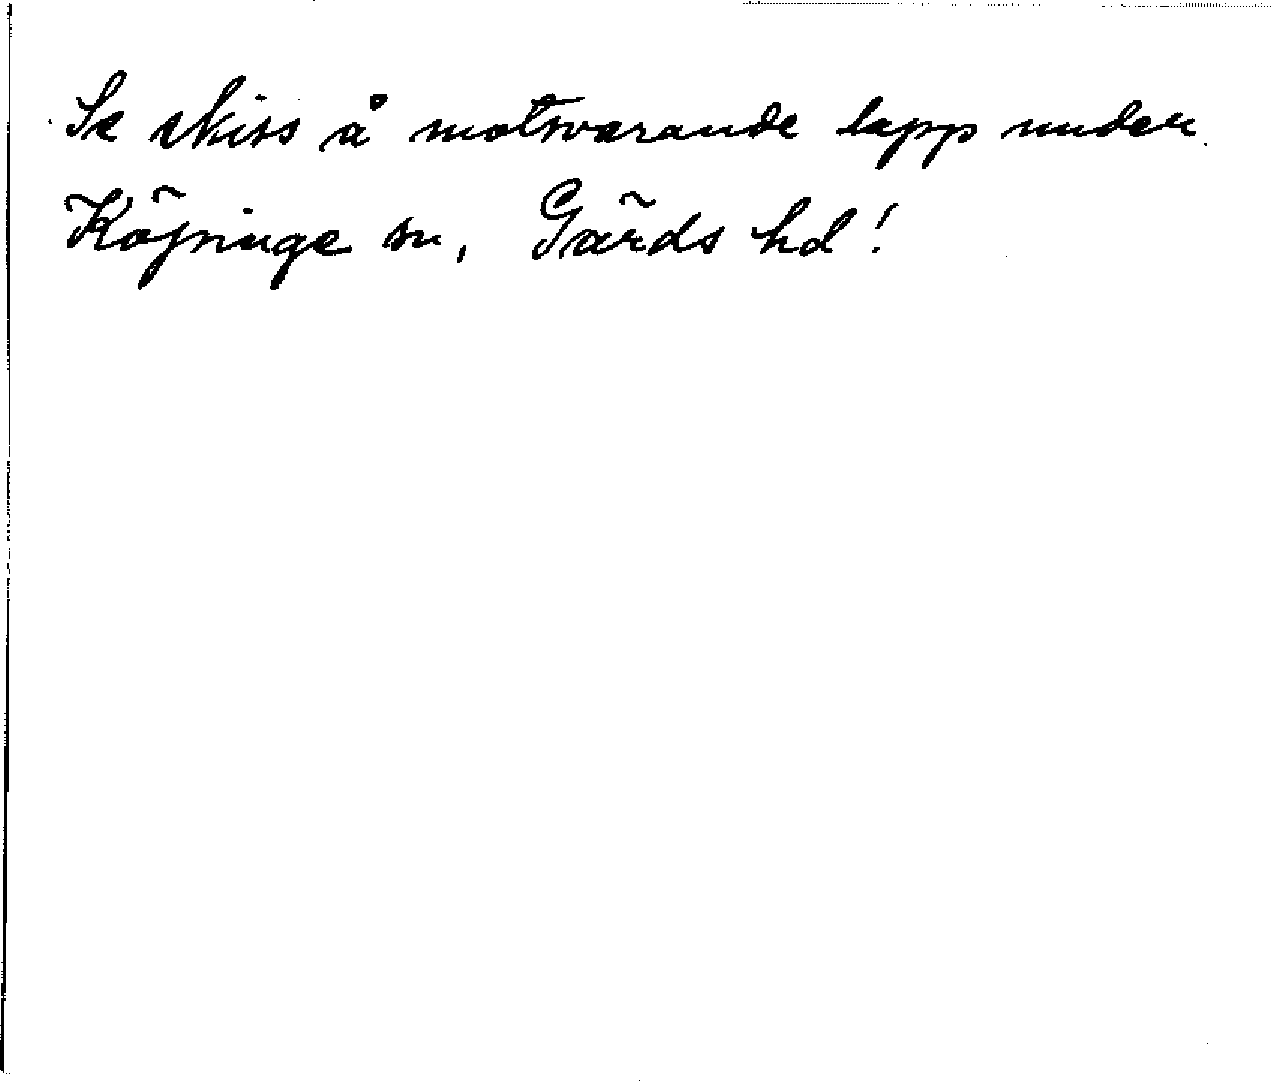 Se skiss å motsvarande lapp under
Köpinge sn, Gärds hd!